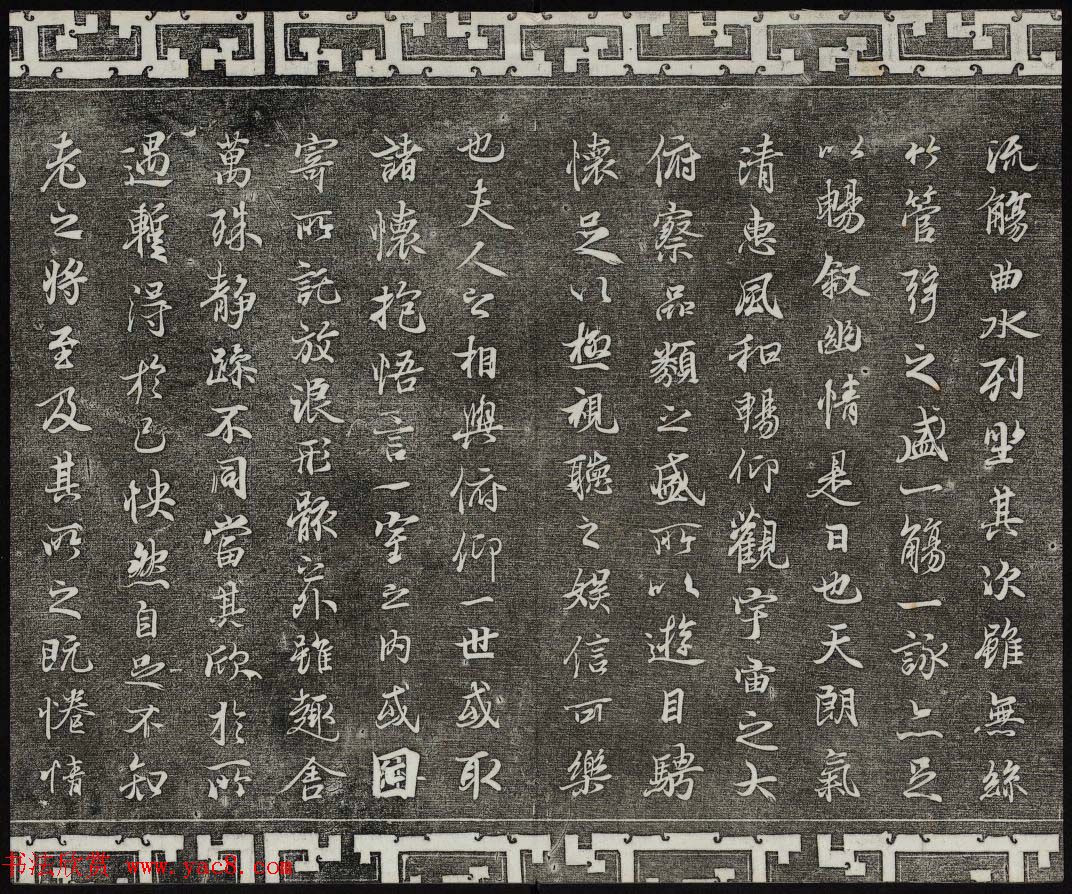 流觴曲水列坐其次雖無絲
竹管弦之盛一觴一詠亦足
以暢敘幽情是日也天朗氣
清惠風和暢仰觀宇宙之大
俯察品類之盛所以遊目騁
懷足以極視聽之娛信可樂
也夫人之相與俯仰一世或取
諸懷抱悟言一室之內或因
寄所託放浪形骸之外雖趣舍
萬殊靜躁不同當其欣於所
遇暫得於己怏然自足不知
老之將至及其所之既惓情
书法欣赏 www.yac8.com